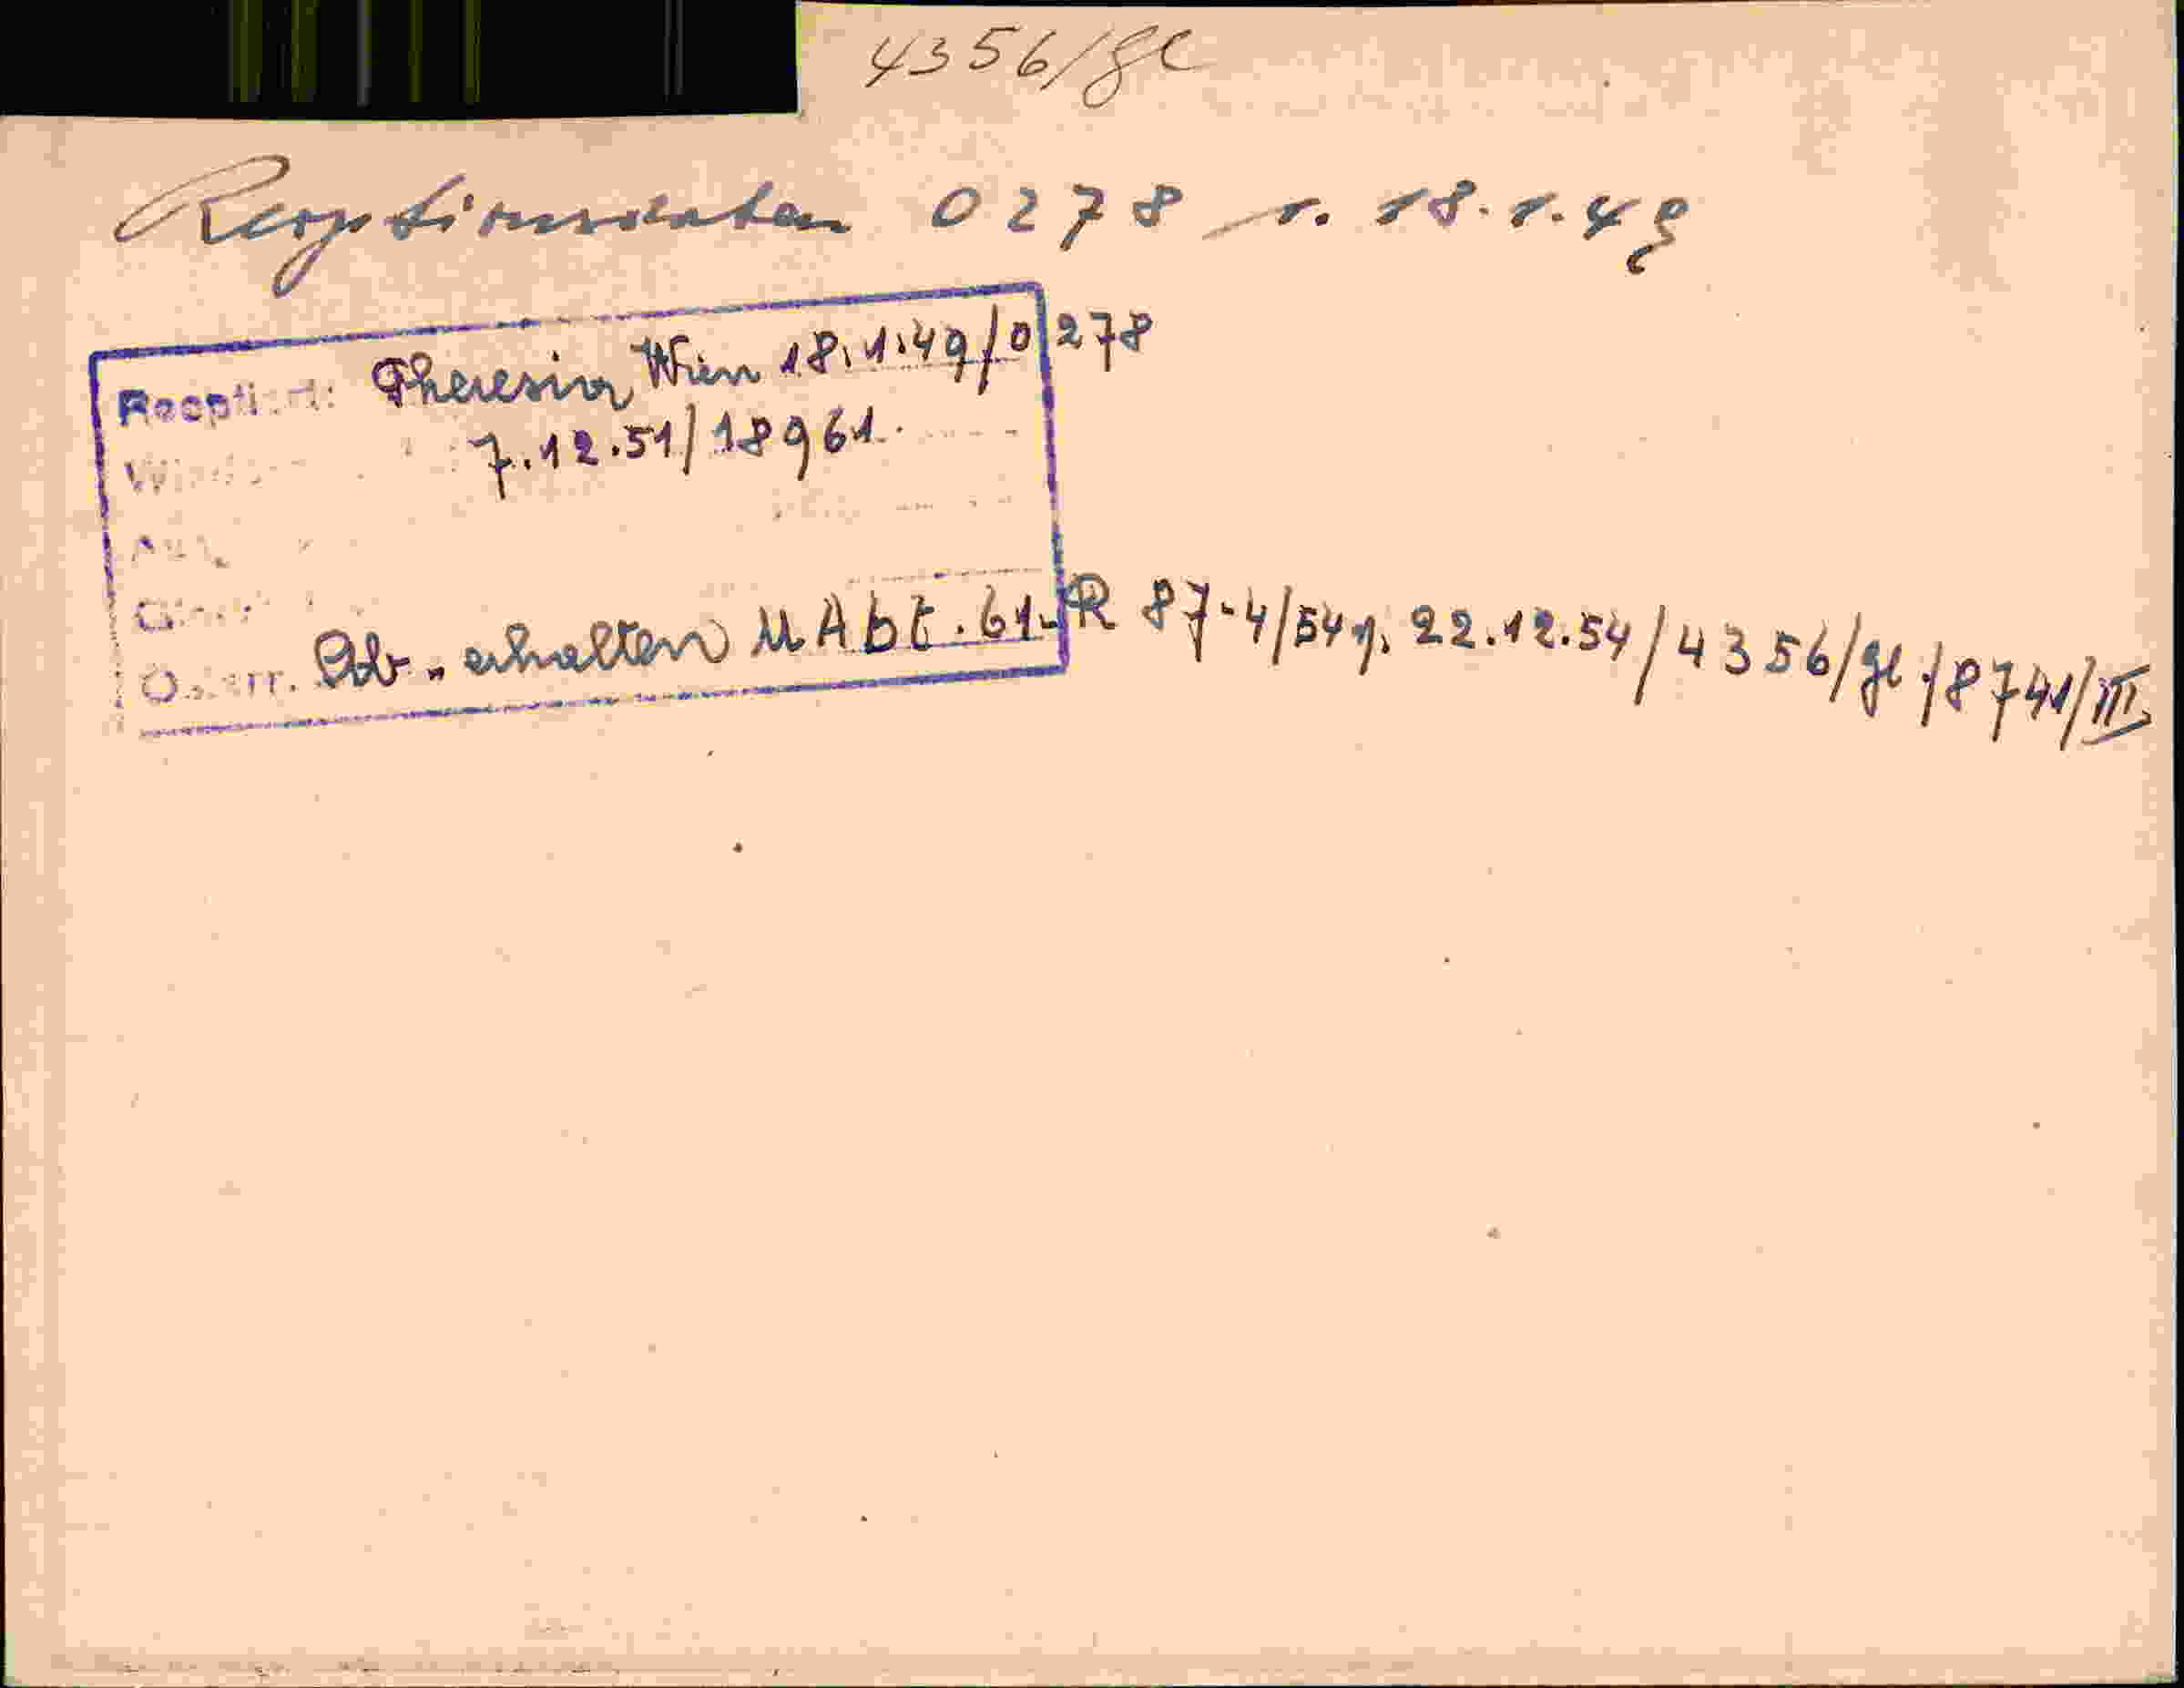 4356/gl
Reeptionsdaten 0278 v. 18.1.49
Reeption: Theresia Wien 18.1.49/0278
7.12.51/18961.
Österr. Stb. erhalten MAbt. 61-R 87-4/54 v. 22.12.54/4356/gl./8741/III